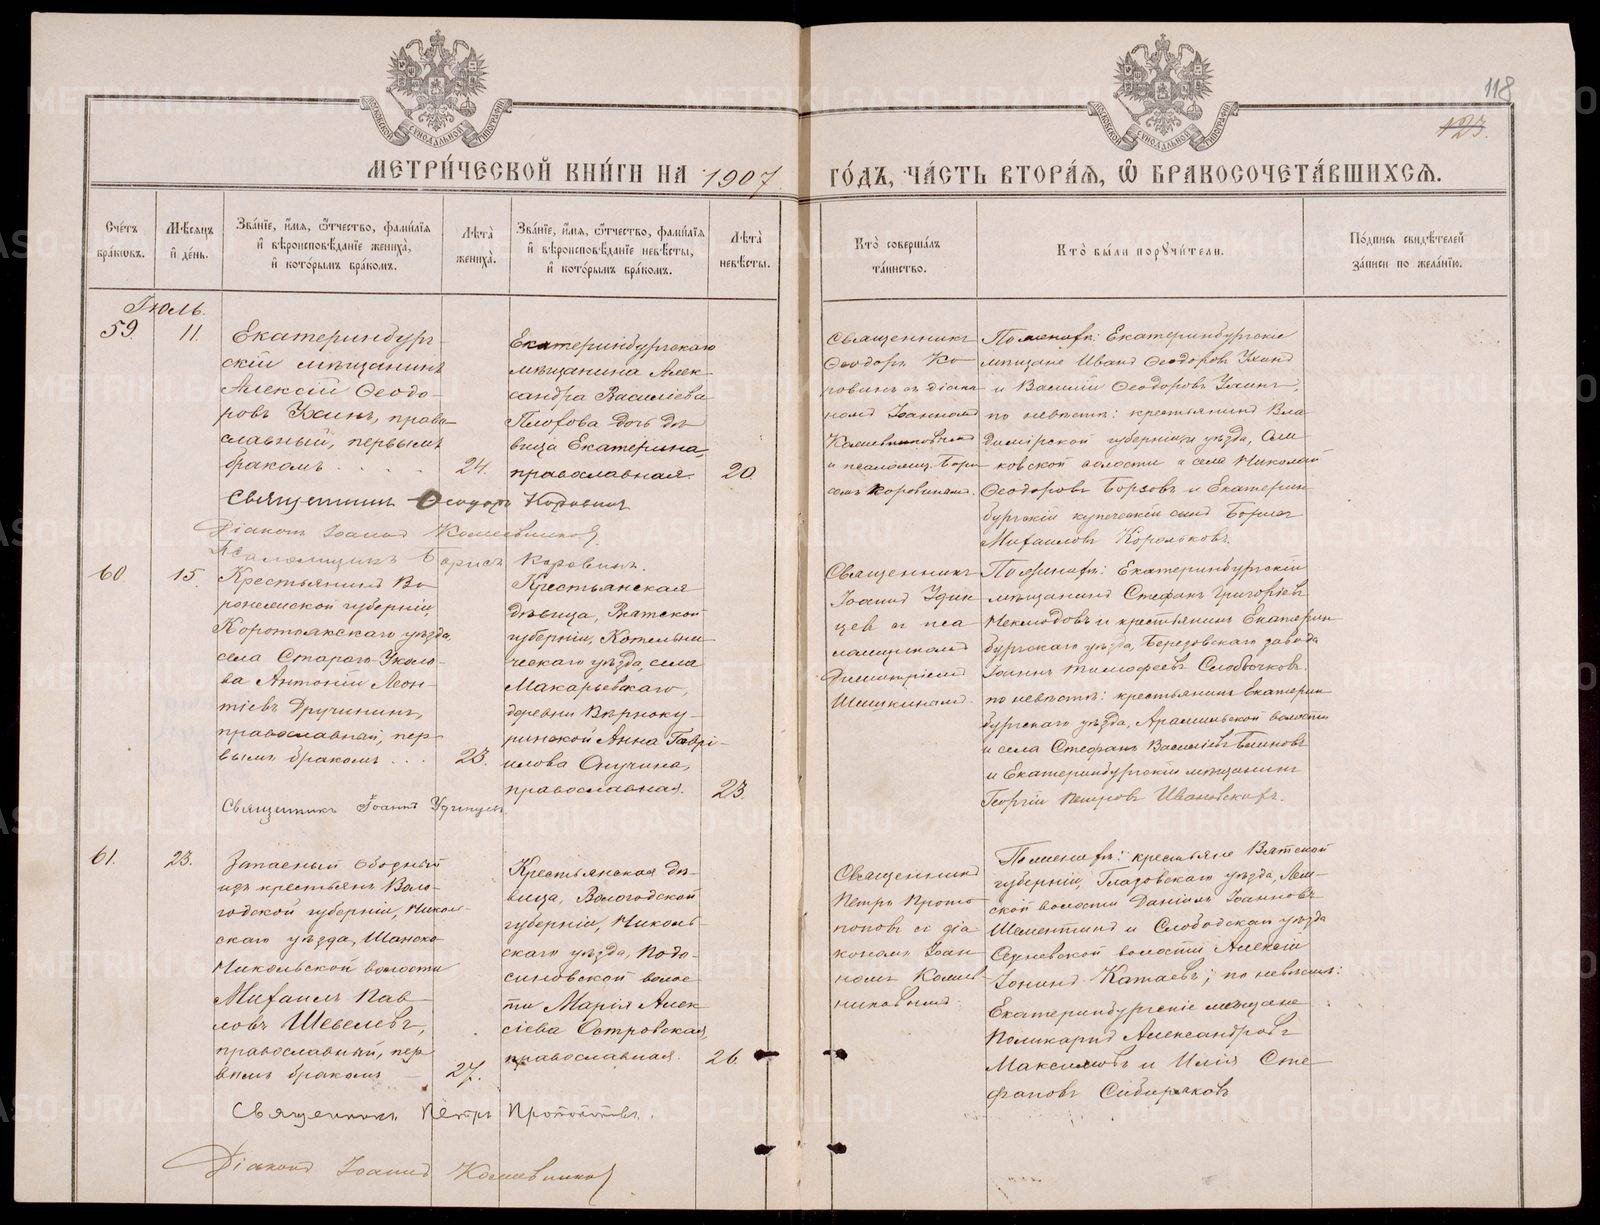 118
123.
МЕТРИ́ЧЕСКОЙ КНИ́ГИ НА 1907 ГО́ДЪ, ЧА́СТЬ ВТОРА́Я, Ѽ БРАКОСОЧЕТА́ВШИХСЯ.
Сче́тъ бра́ковъ.
Мѣ́сяцъ и҆ де́нь.
Зва́нїе, и҆́мѧ, ѻ҆́тчество, фами́лїѧ
и҆ вѣроисповѣ́данїе жениха̀,
и҆ кото́рымъ бра́комъ.
Лѣта̀ жениха̀.
Зва́нїе, и҆́мѧ, ѻ҆́тчество, фами́лїѧ
и҆ вѣроисповѣ́данїе невѣ́сты,
и҆ кото́рымъ бра́комъ.
Лѣта̀ невѣ́сты.
Кто̀ соверша́лъ
та́инство.
Кто̀ бы́ли порꙋчи́тели.
По́дпись свидѣ́телей
за́писи по жела́нїю.
Іюль.
59.
11.
Екатеринбург-
скій мѣщанинъ
Алексій Ѳеодо-
ровъ Ухинъ, право-
славный, первымъ
бракомъ . . . .
24.
Екатеринбургскаго
мѣщанина Алек-
сандра Васильева
дочь дѣ-
вица Екатерина,
православная.
20.
Священникъ
Ѳеодоръ Ко-
ровинъ съ діако-
номъ Іоанномъ
Кожевниковымъ
и псаломщ. Бори-
сомъ Коровинымъ.
По женихѣ: Екатеринбургскіе
мѣщане Иванъ Ѳеодоровъ Ухинъ
и Василій Ѳеодоровъ Ухинъ,
по невѣстѣ: крестьянинъ Вла-
димірской губерніи и уѣзда,
волости и села Николай
Ѳеодоровъ Борзовъ и Екатерин-
бургскій купеческій сынъ Борисъ
Михаиловъ Корольковъ.
Священникъ Ѳеодоръ Коровинъ
Діаконъ Іоаннъ Кожевниковъ.
Псаломщикъ Борисъ Коровинъ.
60
15.
Крестьянинъ Во-
ронежской губерніи,
Коротоякскаго уѣзда,
села Стараго Уколо-
ва Антоній Леон-
тіевъ Дручининъ,
православный, пер-
вымъ бракомъ . . .
23.
Крестьянская
дѣвица, Вятской
губерніи, Котельни-
ческаго уѣзда, села
Макарьевскаго,
деревни
Анна Гаврі-
илова Онучина,
православная.
23.
Священникъ
Іоаннъ Удин-
цев съ пса-
ломщикомъ
Димитріемъ
Шишкинымъ.
По женихѣ: Екатеринбургскій
мѣщанинъ Стефанъ Григоріевъ
и крестьянинъ Екатерин-
бургскаго уѣзда, Березовскаго завода
Іоаннъ Тимофеевъ
по невѣстѣ: крестьянинъ Екатерин-
бургскаго уѣзда, Арамильской волости
и села Стефанъ Василіевъ Блиновъ
и Екатеринбургскій мѣщанинъ
Георгій Петровъ Ивановскихъ.
Священникъ Іоаннъ Удинцевъ
61.
23.
Запасный
изъ крестьянъ Воло-
годской губерніи, Николь-
скаго уѣзда, Шанско-
Никольской волости
Михаилъ Пав-
ловъ Шевелевъ,
православный, пер-
вымъ бракомъ —
27.
Крестьянская дѣ-
вица, Вологодской
губерніи, Николь-
скаго уѣзда, Подо-
синовской волос-
ти Марія Алек-
сіева Островская,
православная.
26.
Священникъ
Петръ Прото-
поповъ съ діа-
кономъ Іоан-
номъ Кожев-
никовымъ.
По женихѣ: крестьяне Вятской
губерніи, Глазовскаго уѣзда,
волости Даніилъ Іоанновъ
и Слободскаго уѣзда
волости Алексій
Катаевъ; по невѣстѣ:
Екатеринбургскіе мѣщане
Поликарпъ Александровъ
Максимовъ и Илія Сте-
фановъ Сибиряковъ
Священникъ Петръ Протопоповъ.
Діаконъ Іоаннъ Кожевниковъ